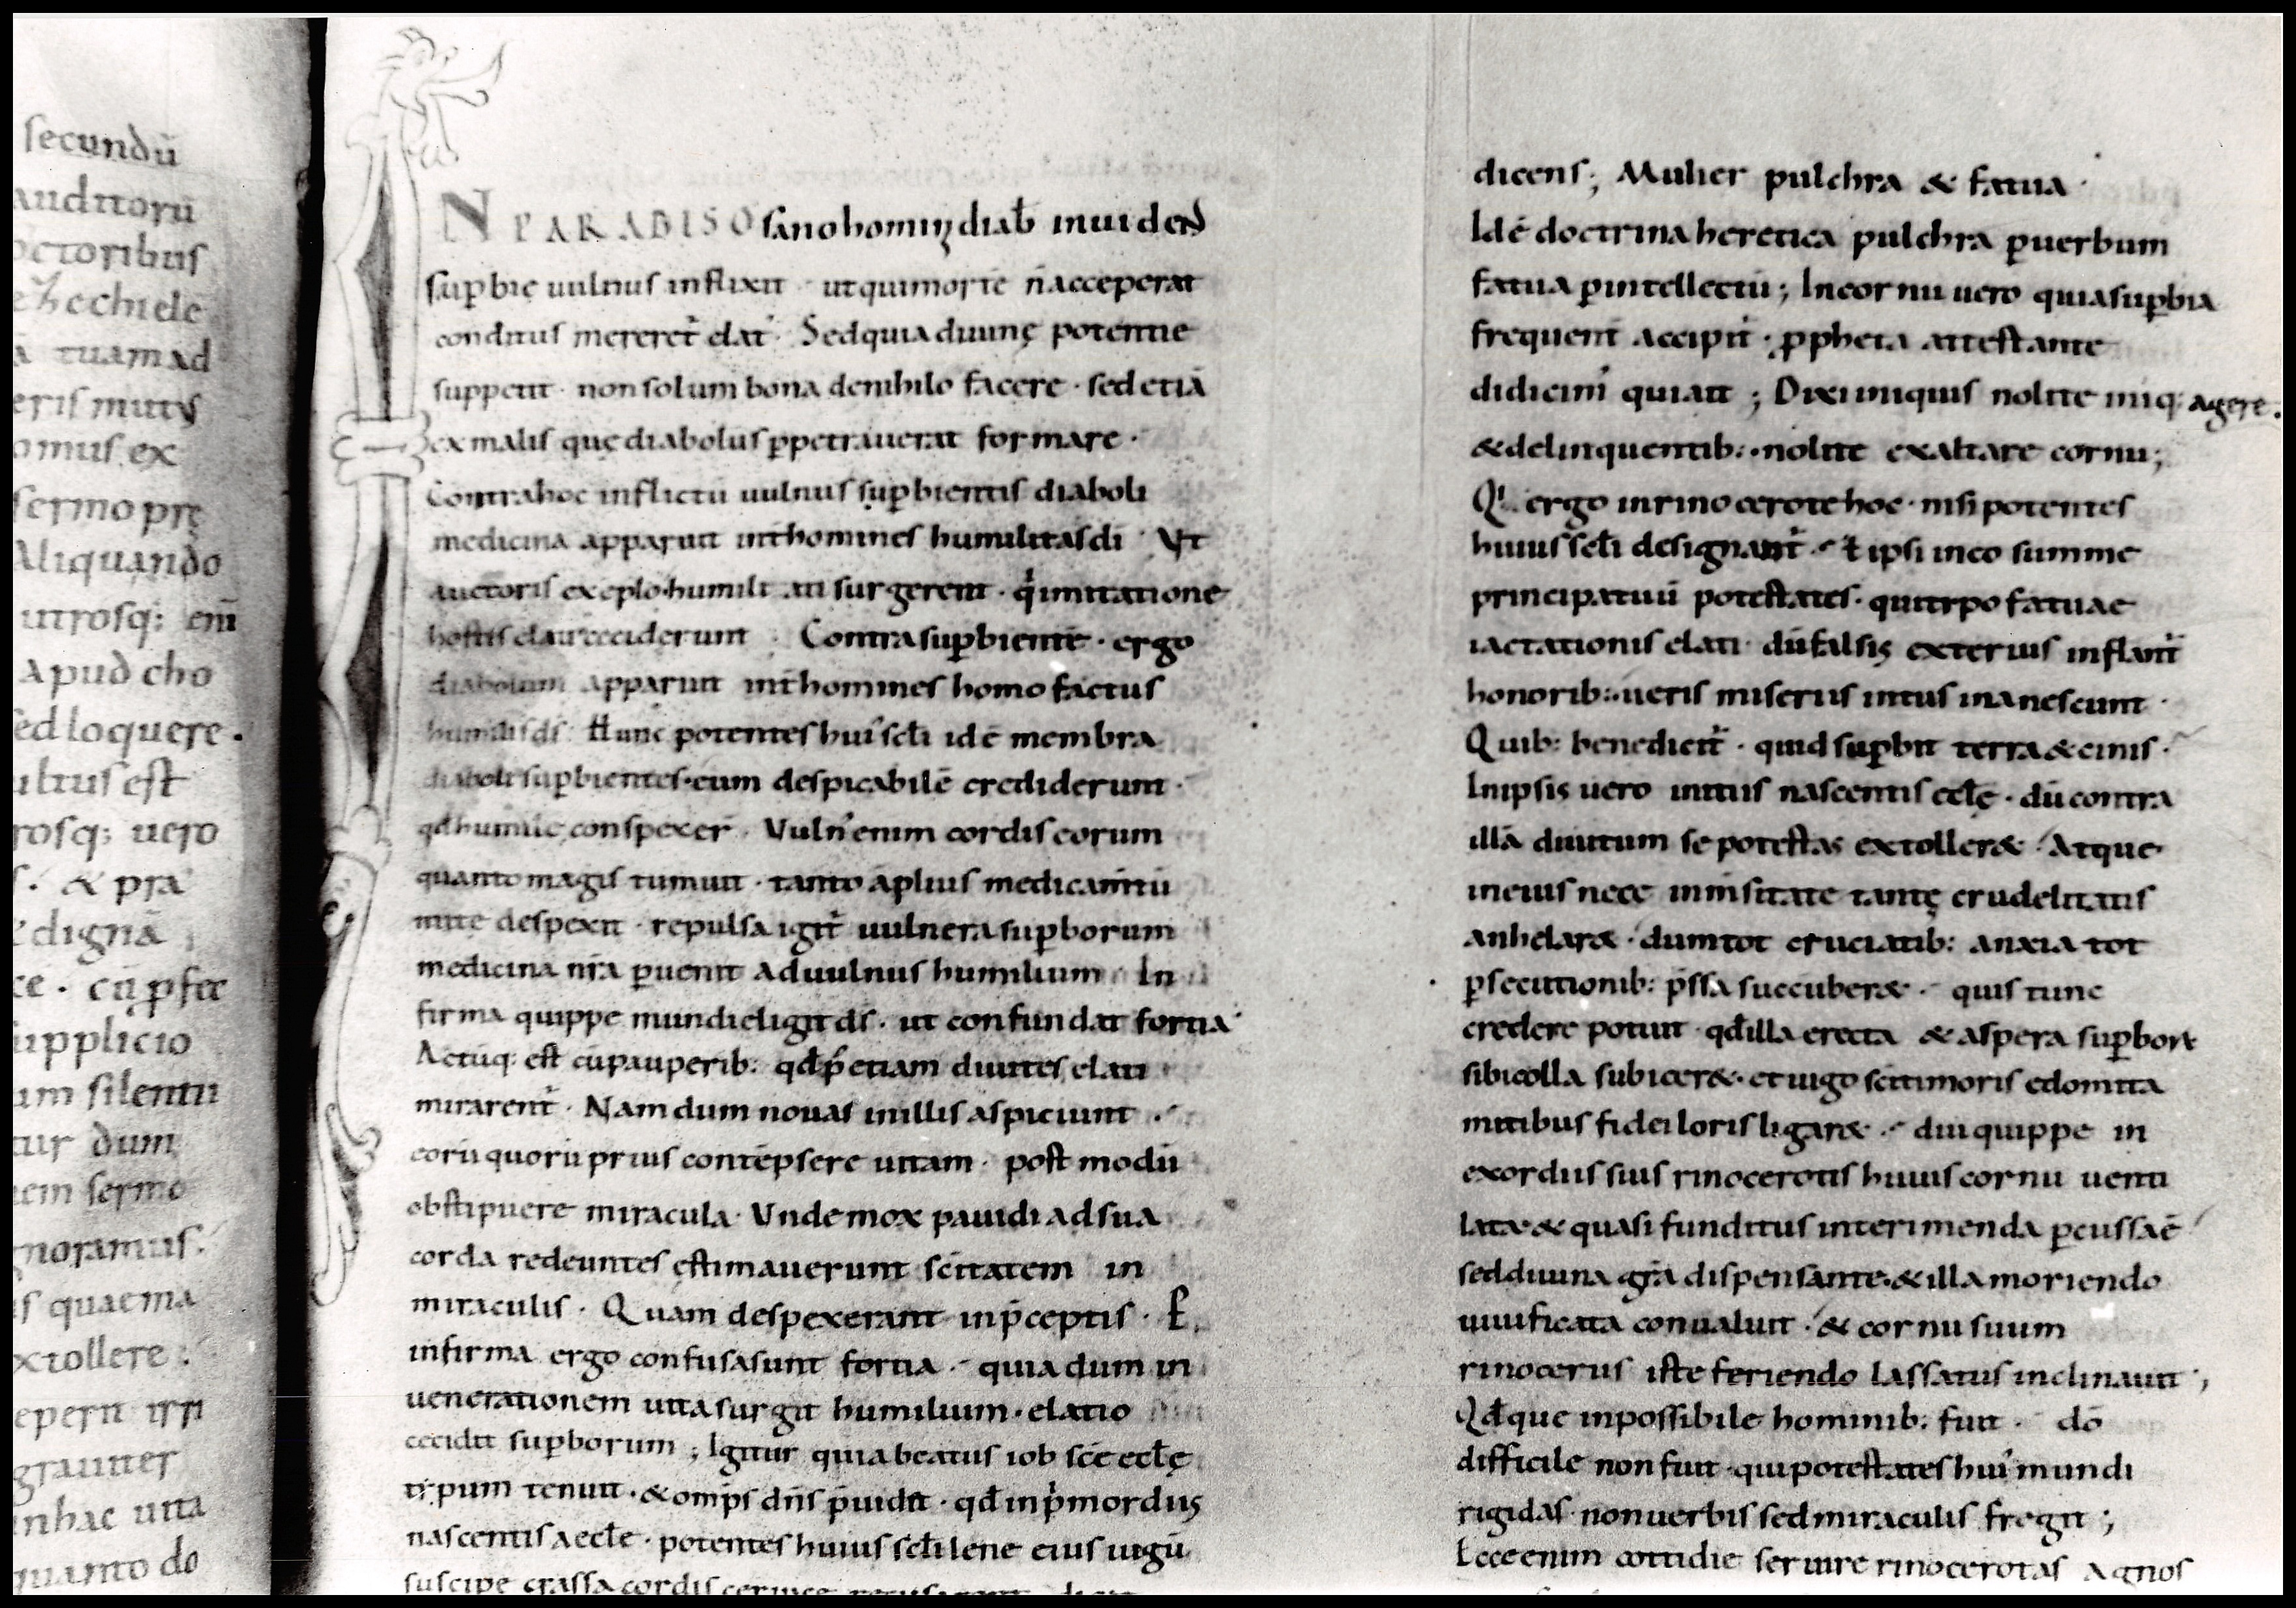 secundū
auditorū
octoribus
ezhechiele
ā tuam ad
eris mutus
omus ex
sermo prę
Aliquando
utrosq; enī
apud cho
sed loquere.
ultus est
rosq; uero
. & pra
dignā
ce. cū pfec
supplicio
um silentii
tur dum
em sermo
gnoramus.
is quae ma
extollere
reperit irri
grauiter
inhac uita
quanto do
N PARADISO sano homini diab inuidens
supbię uulnus inflixit · ut qui morte n acceperat
conditus mereret elat · Sed quia diuinę potentie
suppetit · non solum bona de nihilo facere · sed etiā
ex malis quę diabolus ppetrauerat formare ·
Contra hoc inflictū uulnus supbientis diaboli
medicina apparuit int homines humilitas di · Ut
auctoris exeplo humiliati surgerent · q imitatione
hostis elati ceciderunt · Contra supbientē · ergo
diabolum apparuit int homines homo factus
humilis ds · Hunc potentes hui scli id ē membra
diaboli supbientes · eum despicabilē crediderunt ·
qd humile conspexer · Vuln enim cordis eorum
quanto magis tumuit · tanto aplius medicamtū
mite despexit · repulsa igit uulnera supborum
medicina nra puenit ad uulnus humilium · In
firma quippe mundi eligit ds · ut confundat fortia ·
Actūq; est cū pauperib: qd p etiam diuites elati
mirarent · Nam dum nouas in illis aspiciunt ·
eorū quorū prius contēpsere uitam · post modū
obstipuere miracula · Unde mox pauidi ad sua
corda redeuntes ęstimauerunt scitatem in
miraculis · Quam despexerant in pceptis · P
infirma ergo confusa sunt fortia · quia dum in
uenerationem uita surgit humilium · elatio
cecidit supborum ; Igitur quia beatus iob sce eclę
tipum tenuit · & omps dns puidit · qd in pmordiis
nascentis aecle · potentes huius scli lene eius iugū
suscipe crassa cordis ceruice
dicens ; Mulier pulchra & fatua ·
Id ē doctrina heretica pulchra p uerbum
fatua p intellectū ; In cornu uero quia supbia
frequent accipit · ppheta attestante
didicim qui ait ; Dixi iniquis nolite iniq; agere.
& delinquentib: · nolite exaltare cornu ;
Q ergo in rinocerote hoc · nisi potentes
huius scli designant · l ipsi in eo summe
principatuū potestates · qui tipo fatuae
iactationis elati · dū falsis exterius inflant
honorib: · ueris miseriis intus inanescunt ·
Quib: bene dicit · quid supbit terra & cinis ·
In ipsis uero initiis nascentis eclę · dū contra
illā diuitum se potestas extolleret · Atque
in eius nece inmsitate tantę crudelitatis
anhelaret · dum tot cruciatib: anxia tot
psecutionib: pssa succuberet · quis tunc
credere potuit · qd illa erecta & aspera supborū
sibi colla subiceret · et iugo sci timoris edomita
mitibus fidei loris ligaret · diu quippe in
exordiis suis rinocerotis huius cornu uenti
lata & quasi funditus interimenda pcussa ē
sed diuina gra dispensante · & illa moriendo
uiuificata conualuit · & cornu suum
rinocerus iste feriendo lassatus inclinauit ;
Qdque inpossibile hominib: fuit · dō
difficile non fuit · qui potestates hui mundi
rigidas non uerbis sed miraculis fregit ;
Ecce enim cottidie seruire rinocerotas agnos